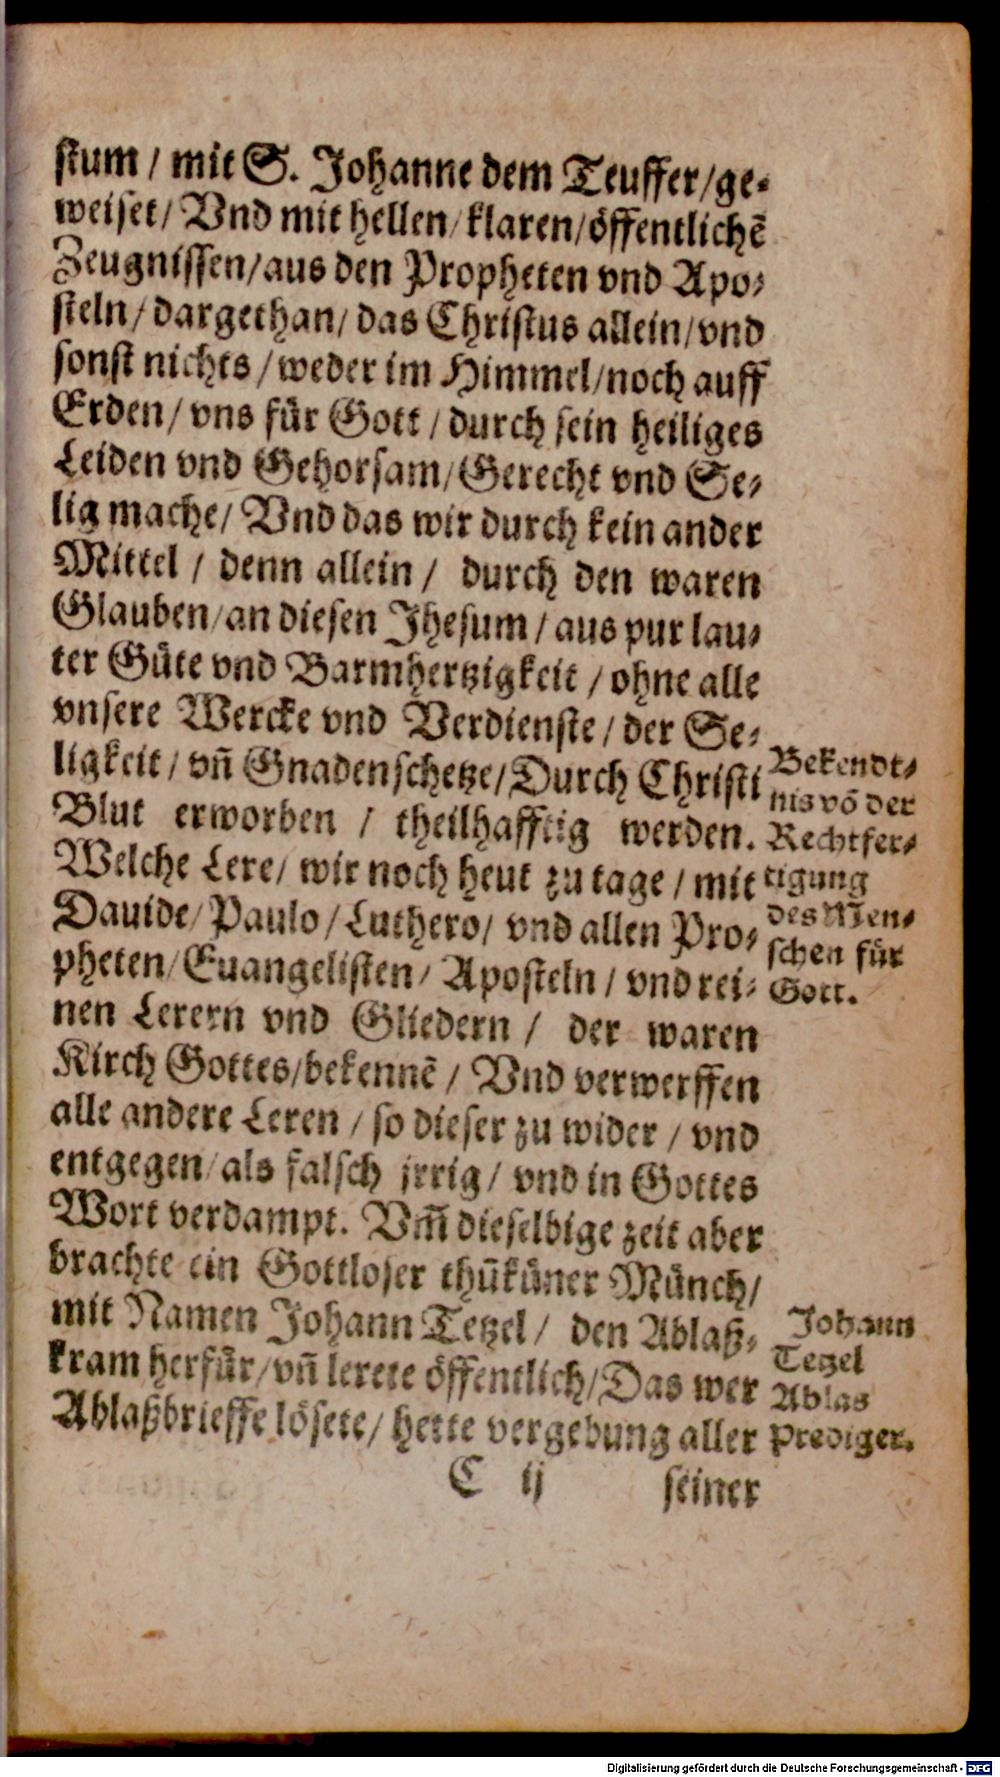 stum / mit S. Johanne dem Teuffer/ge-
weiset/ Vnd mit hellen/klaren/öffentlichē
Zeugnissen/aus den Propheten vnd Apo-
steln/ dargethan/ das Christus allein/vnd
sonst nichts /weder im Himmel/noch auff
Erden/ vns für Gott / durch sein heiliges
Leiden vnd Gehorsam/Gerecht vnd Se-
lig mache/ Vnd das wir durch kein ander
Mittel / denn allein / durch den waren
Glauben/an diesen Jhesum / aus pur lau-
ter Güte vnd Barmhertzigkeit / ohne alle
vnsere Wercke vnd Verdienste / der Se-
ligkeit/ vn̄ Gnadenschetze/Durch Christi
Blut erworben / theilhafftig werden.
Welche Lere/ wir noch heut zu tage / mit
Dauide/Paulo/Luthero/ vnd allen Pro-
pheten/Euangelisten/ Aposteln / vnd rei-
nen Lerern vnd Gliedern / der waren
Kirch Gottes/bekennē / Vnd verwerffen
alle andere Leren / so dieser zu wider / vnd
entgegen/als falsch jrrig/ vnd in Gottes
Wort verdampt. Vm̄ dieselbige zeit aber
brachte ein Gottloser thūküner Münch/
mit Namen Johann Tetzel / den Ablaß-
kram herfür/vn̄ lerete öffentlich/Das wer
Ablaßbrieffe lösete/ hette vergebung aller
C ij seiner
Bekendt-
nis vō der
Rechtfer-
tigung
des Men-
schen für
Gott.
Johann
Tetzel
Ablas
Prediger.
Digitalisierung gefördert durch die Deutsche Forschungsgemeinschaft - DFG